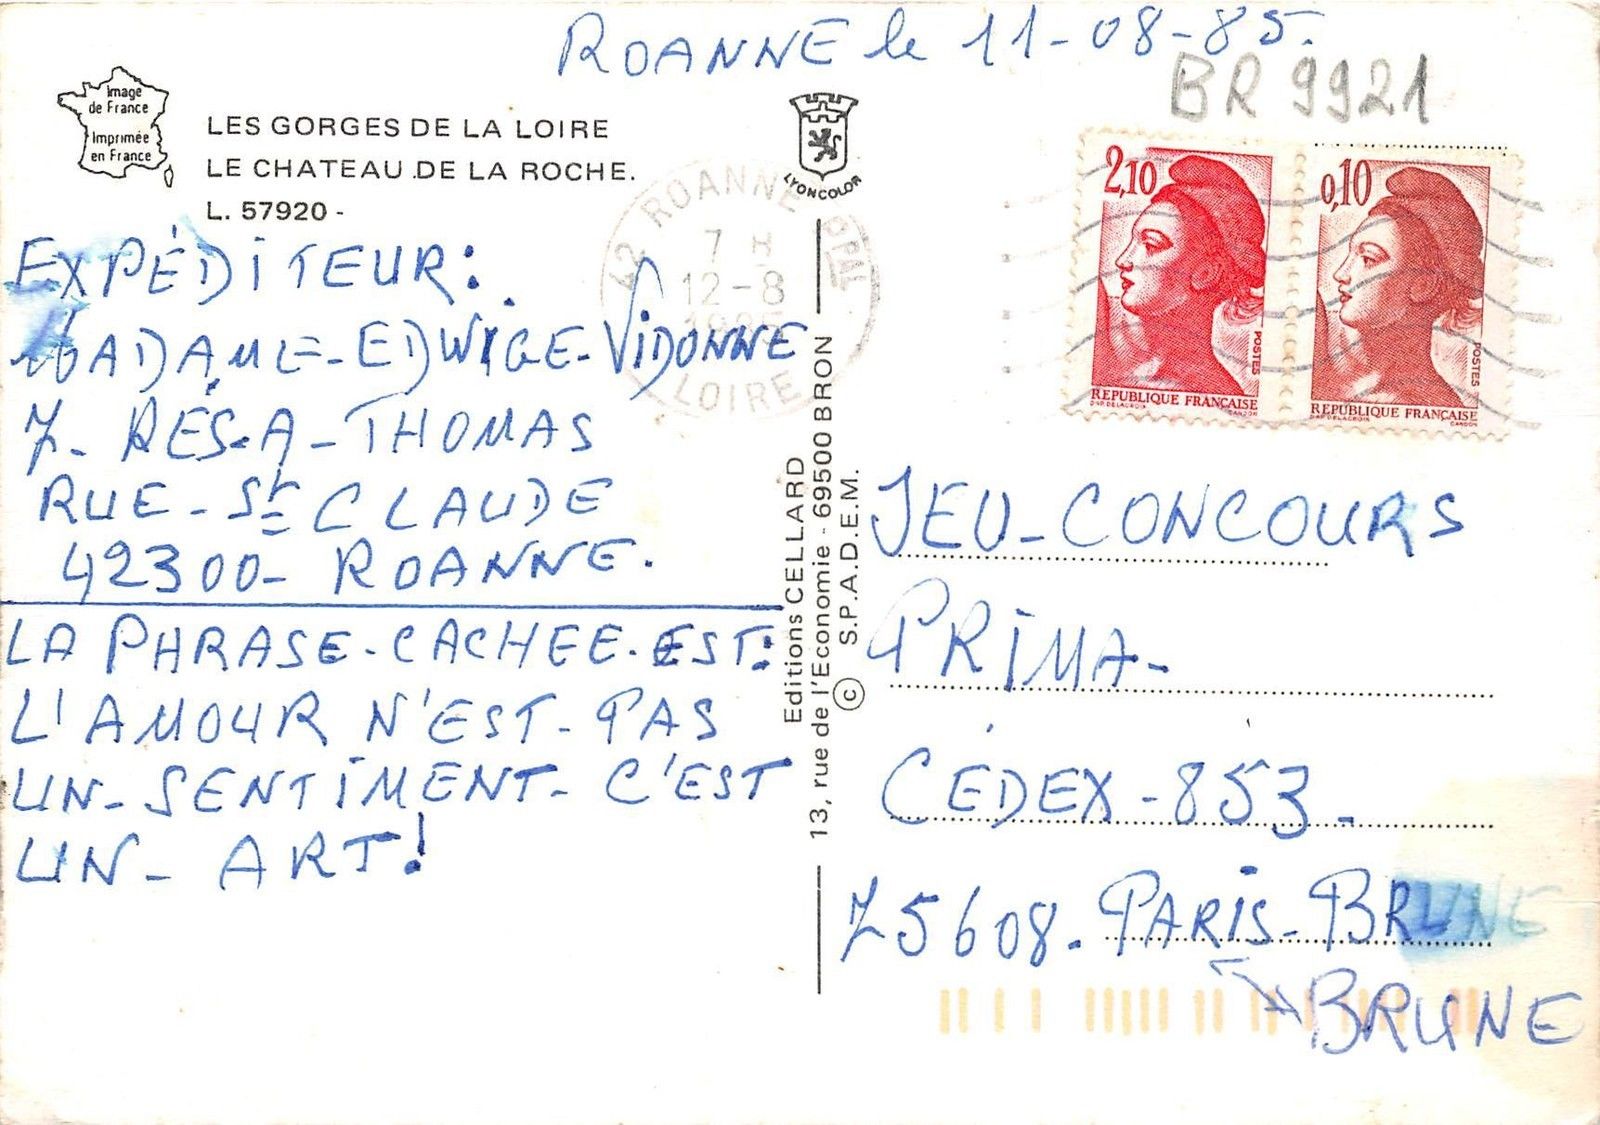 ROANNE le 11-08-85.
BR 9921
Image
de France
Imprimée
en France
LES GORGES DE LA LOIRE
LE CHATEAU.DE LA ROCHE.
L. 57920 -
LYONCOLOR
42 ROANNE PPAL
7 H
12-8
1985
LOIRE
2,10
POSTES
REPUBLIQUE FRANÇAISE
D'AP. DELACROIX
GANDON
0,10
POSTES
REPUBLIQUE FRANÇAISE
D'AP. DELACROIX
GANDON
EXPÉDITEUR:
MADAME-EDWIGE-VIDONNE
7- RÉS-A-THOMAS
RUE-St CLAUDE
42300-ROANNE.
LA PHRASE-CACHEE-EST:
L'AMOUR N'EST-PAS
UN-SENTIMENT-C'EST
UN-ART!
Editions CELLARD
13, rue de l'Economie - 69500 BRON
© S.P.A.D.E.M.
JEU-CONCOURS
PRIMA-
CÉDEX-853-
75608-PARIS-BRUNE
BRUNE